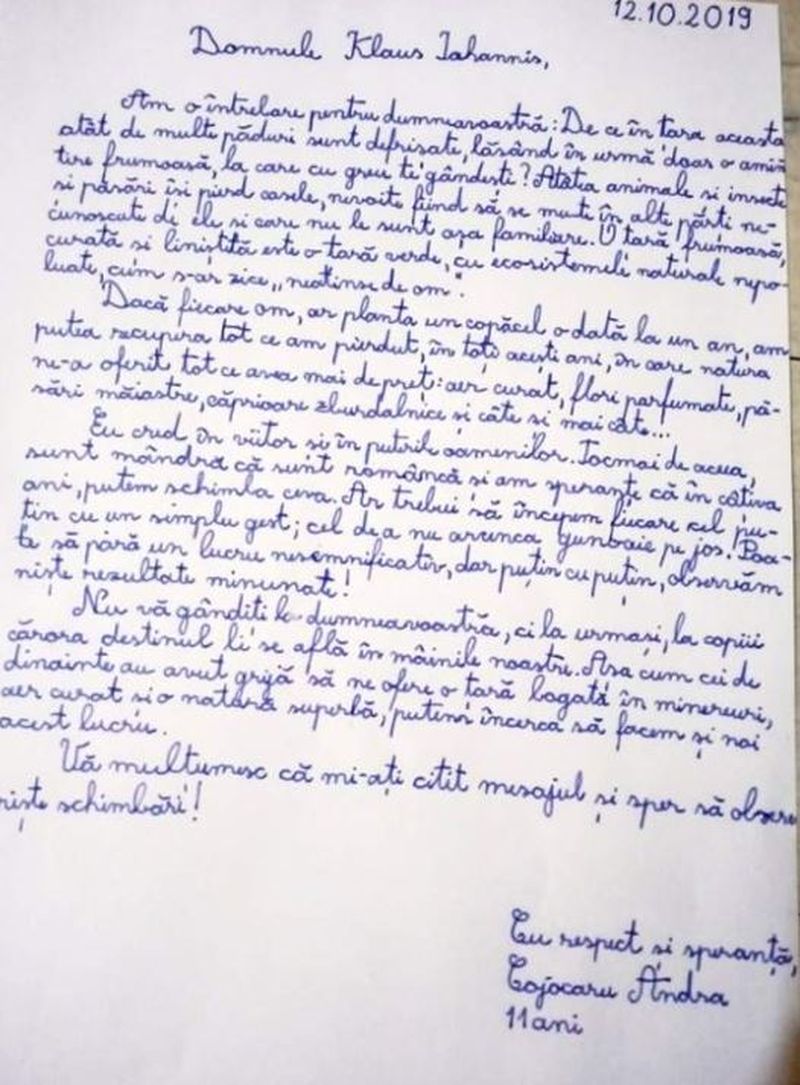 12.10.2019
Domnule Klaus Iohannis,
Am o întrebare pentru dumneavoastră: De ce în țara aceasta
atât de multe păduri sunt defrișate, lăsând în urmă doar o amin
tire frumoasă, la care cu greu te gândești? Atâtea animale si insecte
si păsări își pierd casele, nevoite fiind să se mute în alte părți ne-
cunoscute de ele si care nu le sunt așa familiare. O țară frumoasă,
curată si liniștită este o țară verde, cu ecosistemele naturale nepo-
luate, cum s-ar zice „neatinse de om".
Dacă fiecare om, ar planta un copăcel o dată la un an, am
putea recupera tot ce am pierdut, în toți acești ani, în care natura
ne-a oferit tot ce avea mai de preț: aer curat, flori parfumate, pă-
sări măiastre, căprioare zburdalnice și câte si mai câte...
Eu cred în viitor si în puterile oamenilor. Tocmai de aceea,
sunt mândră că sunt româncă si am speranțe că în câtiva
ani, putem schimba ceva. Ar trebui să începem fiecare cel pu-
tin cu un simplu gest; cel de a nu arunca gunoaie pe jos. Poa-
te să pară un lucru nesemnificativ, dar puțin cu puțin, observăm
niște rezultate minunate!
Nu vă gânditi la dumneavoastră, ci la urmași, la copiii
cărora destinul li se află în mâinile noastre. Asa cum cei de
dinainte au avut grijă să ne ofere o țară bogată în minereuri,
aer curat si o natură superbă, putem încerca să facem și noi
acest lucru.
Vă multumesc că mi-ați citit mesajul și sper să observ
niște schimbări!
Cu respect și speranță,
Cojocaru Andra
11 ani